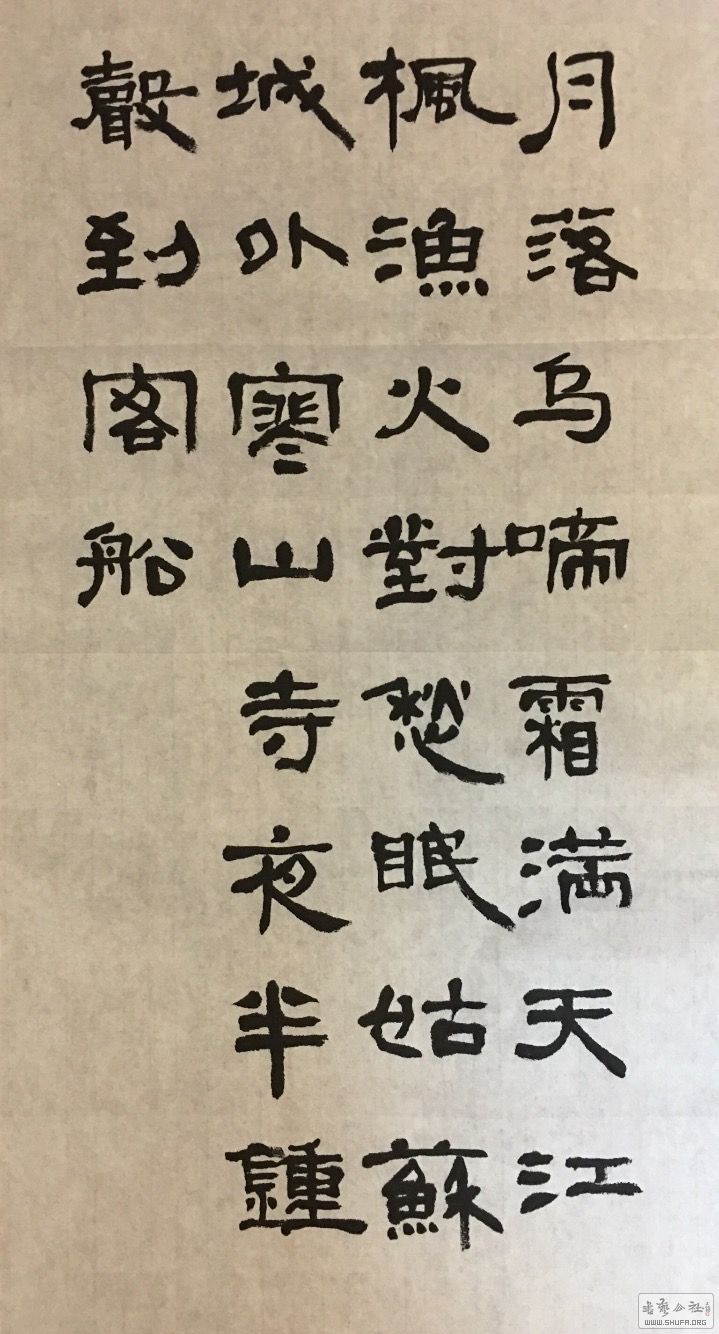 月落乌啼霜满天江
楓漁火對愁眠姑蘇
城外寒山寺夜半鍾
聲到客船
WWW.SHUFA.ORG